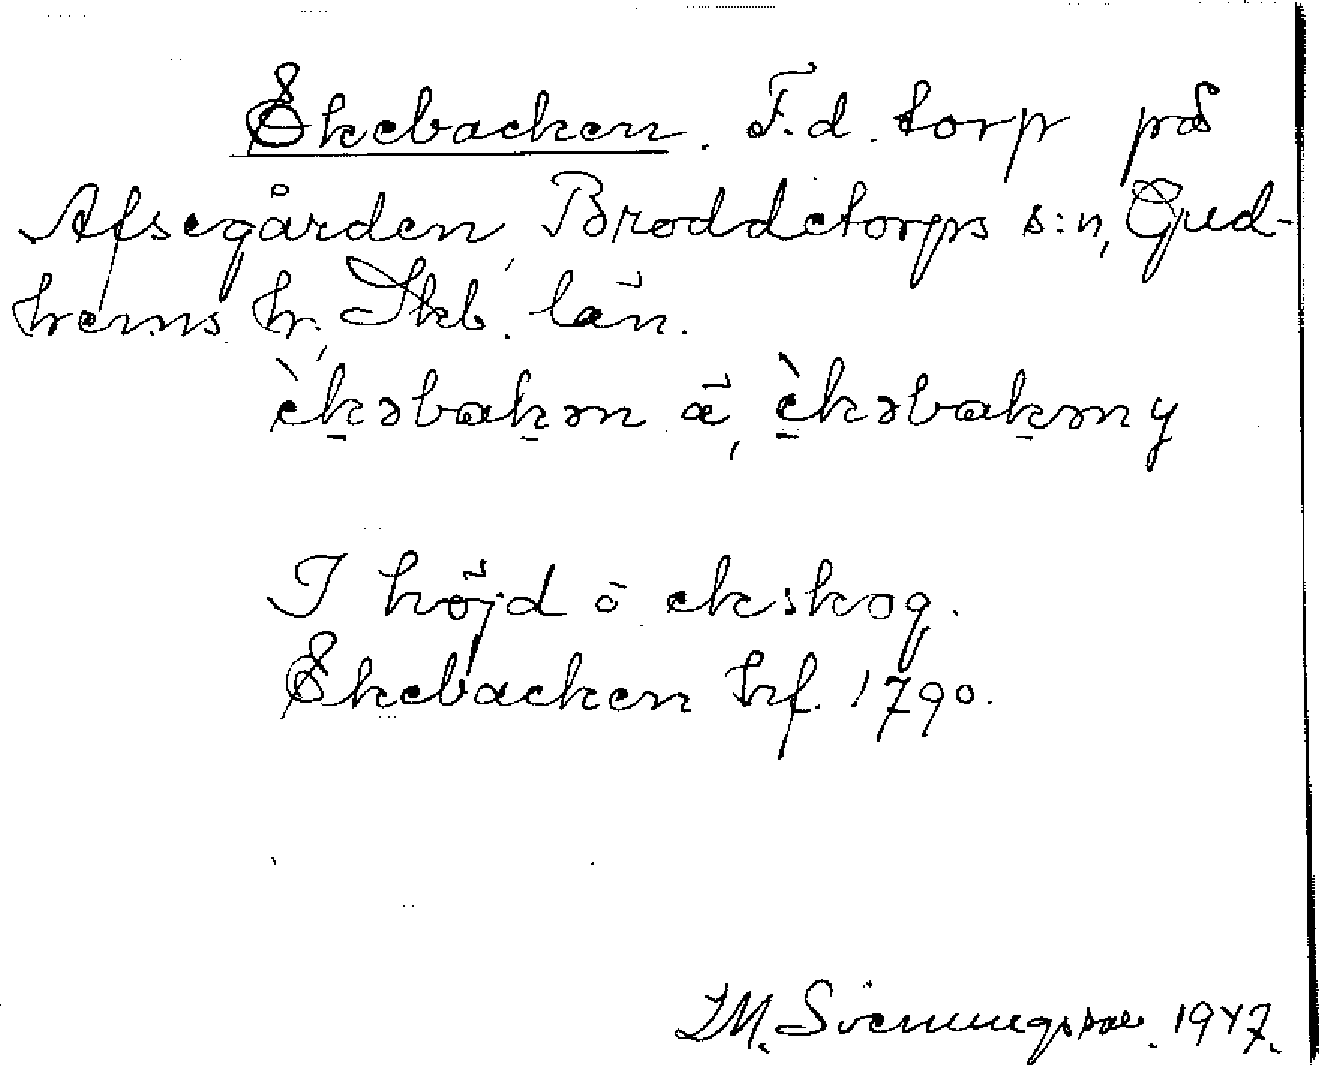 Ekebacken. F.d. torp på
Afsegården, Broddetorps s:n, Gud-
hems hr, Skb. län.
èkəbakən ä, èkəbakən y
I höjd o ekskog.
Ekebacken hf. 1790.
Svenungsson. 1947.